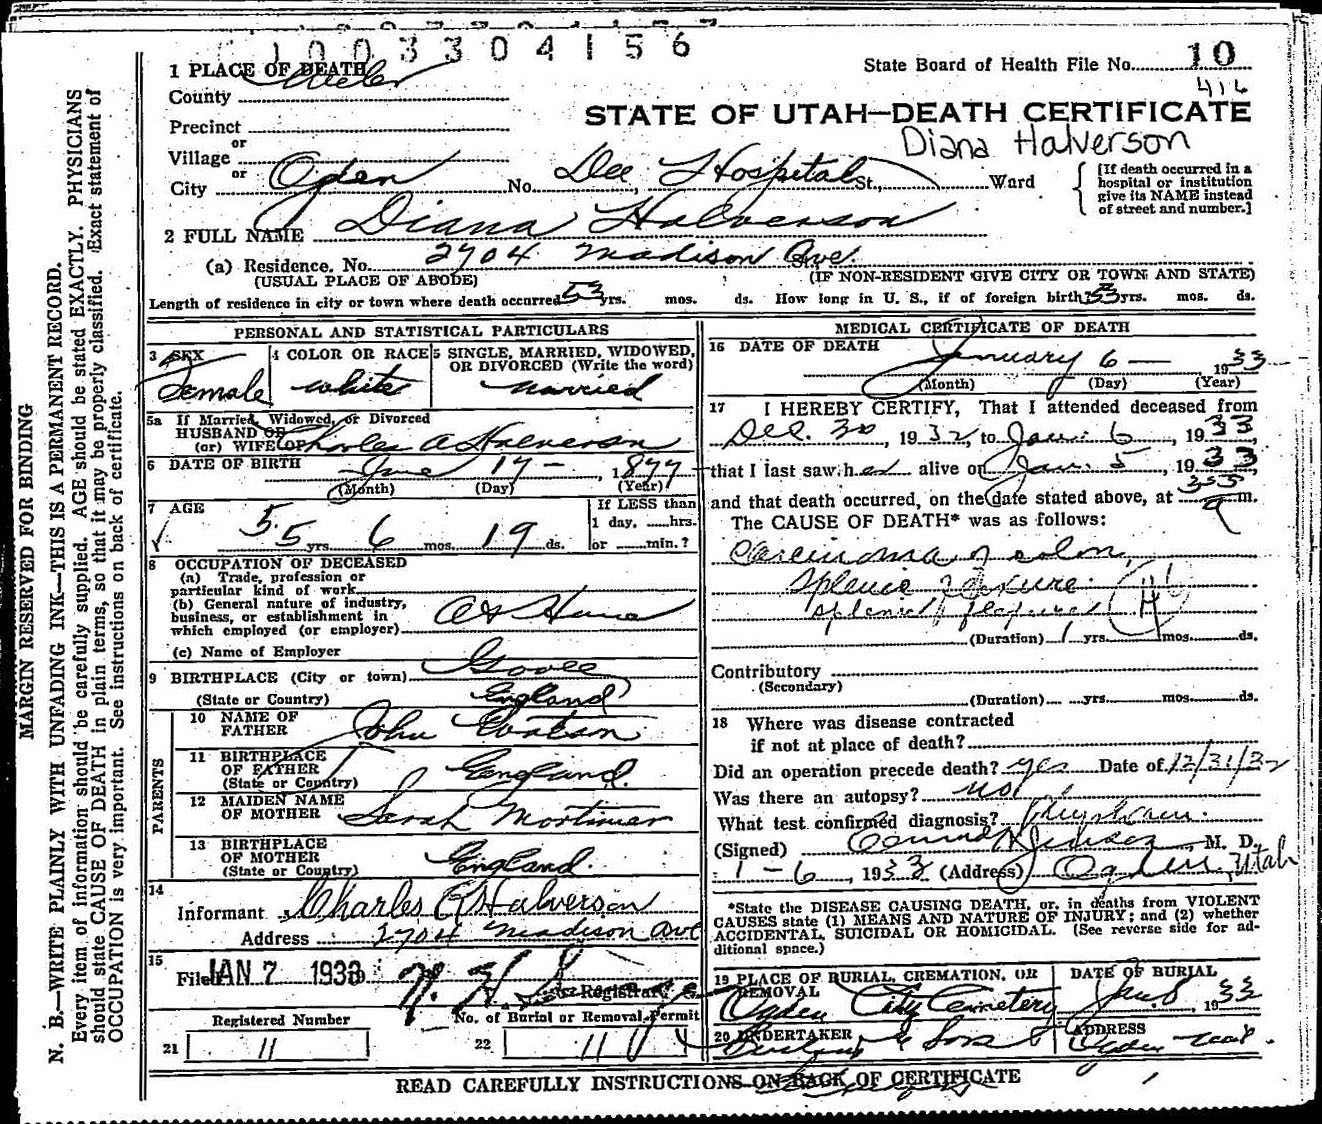 1003304156
1 PLACE OF DEATH
State Board of Health File No. 10
County Weber
416
STATE OF UTAH—DEATH CERTIFICATE
Precinct
Diana Halverson
or
Village
or
City Ogden No. Dee Hospital St., Ward
[If death occurred in a hospital or institution give its NAME instead of street and number.]
2 FULL NAME Diana Halverson
(a) Residence. No. 2704 Madison Ave.
(USUAL PLACE OF ABODE) (IF NON-RESIDENT GIVE CITY OR TOWN AND STATE)
Length of residence in city or town where death occurred 53 yrs. mos. ds. How long in U. S., if of foreign birth? 53 yrs. mos. ds.
PERSONAL AND STATISTICAL PARTICULARS
3 SEX 4 COLOR OR RACE 5 SINGLE, MARRIED, WIDOWED, OR DIVORCED (Write the word)
Female white married
5a If Married, Widowed, or Divorced
HUSBAND OF
(or) WIFE OF Charles A Halverson
6 DATE OF BIRTH June 17 — 1877
(Month) (Day) (Year)
7 AGE
If LESS than
1 day, hrs.
or min.?
55 yrs. 6 mos. 19 ds.
8 OCCUPATION OF DECEASED
(a) Trade, profession or
particular kind of work
(b) General nature of industry,
business, or establishment in
which employed (or employer) At Home
(c) Name of Employer
9 BIRTHPLACE (City or town)
(State or Country) England
PARENTS
10 NAME OF
FATHER John
11 BIRTHPLACE
OF FATHER
(State or Country) England.
12 MAIDEN NAME
OF MOTHER Sarah Mortimer
13 BIRTHPLACE
OF MOTHER
(State or Country) England.
14
Informant Charles A Halverson
Address 2704 Madison Ave
15
Filed JAN 7 1933 Registrar
Registered Number No. of Burial or Removal Permit
21 11 22 11
MEDICAL CERTIFICATE OF DEATH
16 DATE OF DEATH
January 6 — 1933
(Month) (Day) (Year)
17 I HEREBY CERTIFY, That I attended deceased from
Dec. 30, 1932, to Jan. 6, 1933,
that I last saw her alive on Jan. 5, 1933,
and that death occurred, on the date stated above, at 355 a m.
The CAUSE OF DEATH* was as follows:
Carcinoma of colon,
splenic flexure.
splenic flexure
(Duration) 1 yrs. mos. ds.
Contributory
(Secondary)
(Duration) yrs. mos. ds.
18 Where was disease contracted
if not at place of death?
Did an operation precede death? yes Date of 12/31/32
Was there an autopsy? no
What test confirmed diagnosis?
(Signed) M. D.
1-6, 1933 (Address) Ogden, Utah
*State the DISEASE CAUSING DEATH, or, in deaths from VIOLENT
CAUSES state (1) MEANS AND NATURE OF INJURY; and (2) whether
ACCIDENTAL, SUICIDAL OR HOMICIDAL. (See reverse side for ad-
ditional space.)
19 PLACE OF BURIAL, CREMATION, OR REMOVAL DATE OF BURIAL
Ogden City Cemetery Jan. 8, 1933
20 UNDERTAKER ADDRESS
& Sons Ogden Utah.
READ CAREFULLY INSTRUCTIONS ON BACK OF CERTIFICATE
MARGIN RESERVED FOR BINDING
N. B.—WRITE PLAINLY WITH UNFADING INK—THIS IS A PERMANENT RECORD.
Every item of information should be carefully supplied. AGE should be stated EXACTLY. PHYSICIANS
should state CAUSE OF DEATH in plain terms, so that it may be properly classified. Exact statement of
OCCUPATION is very important. See instructions on back of certificate.